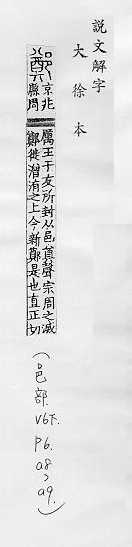 說文解字
大徐本
鄭 京兆縣周厲王子友所封从邑奠聲宗周之滅
鄭徙潧洧之上今新鄭是也直正切
(邑部.V6下.P6.a8、a9.)